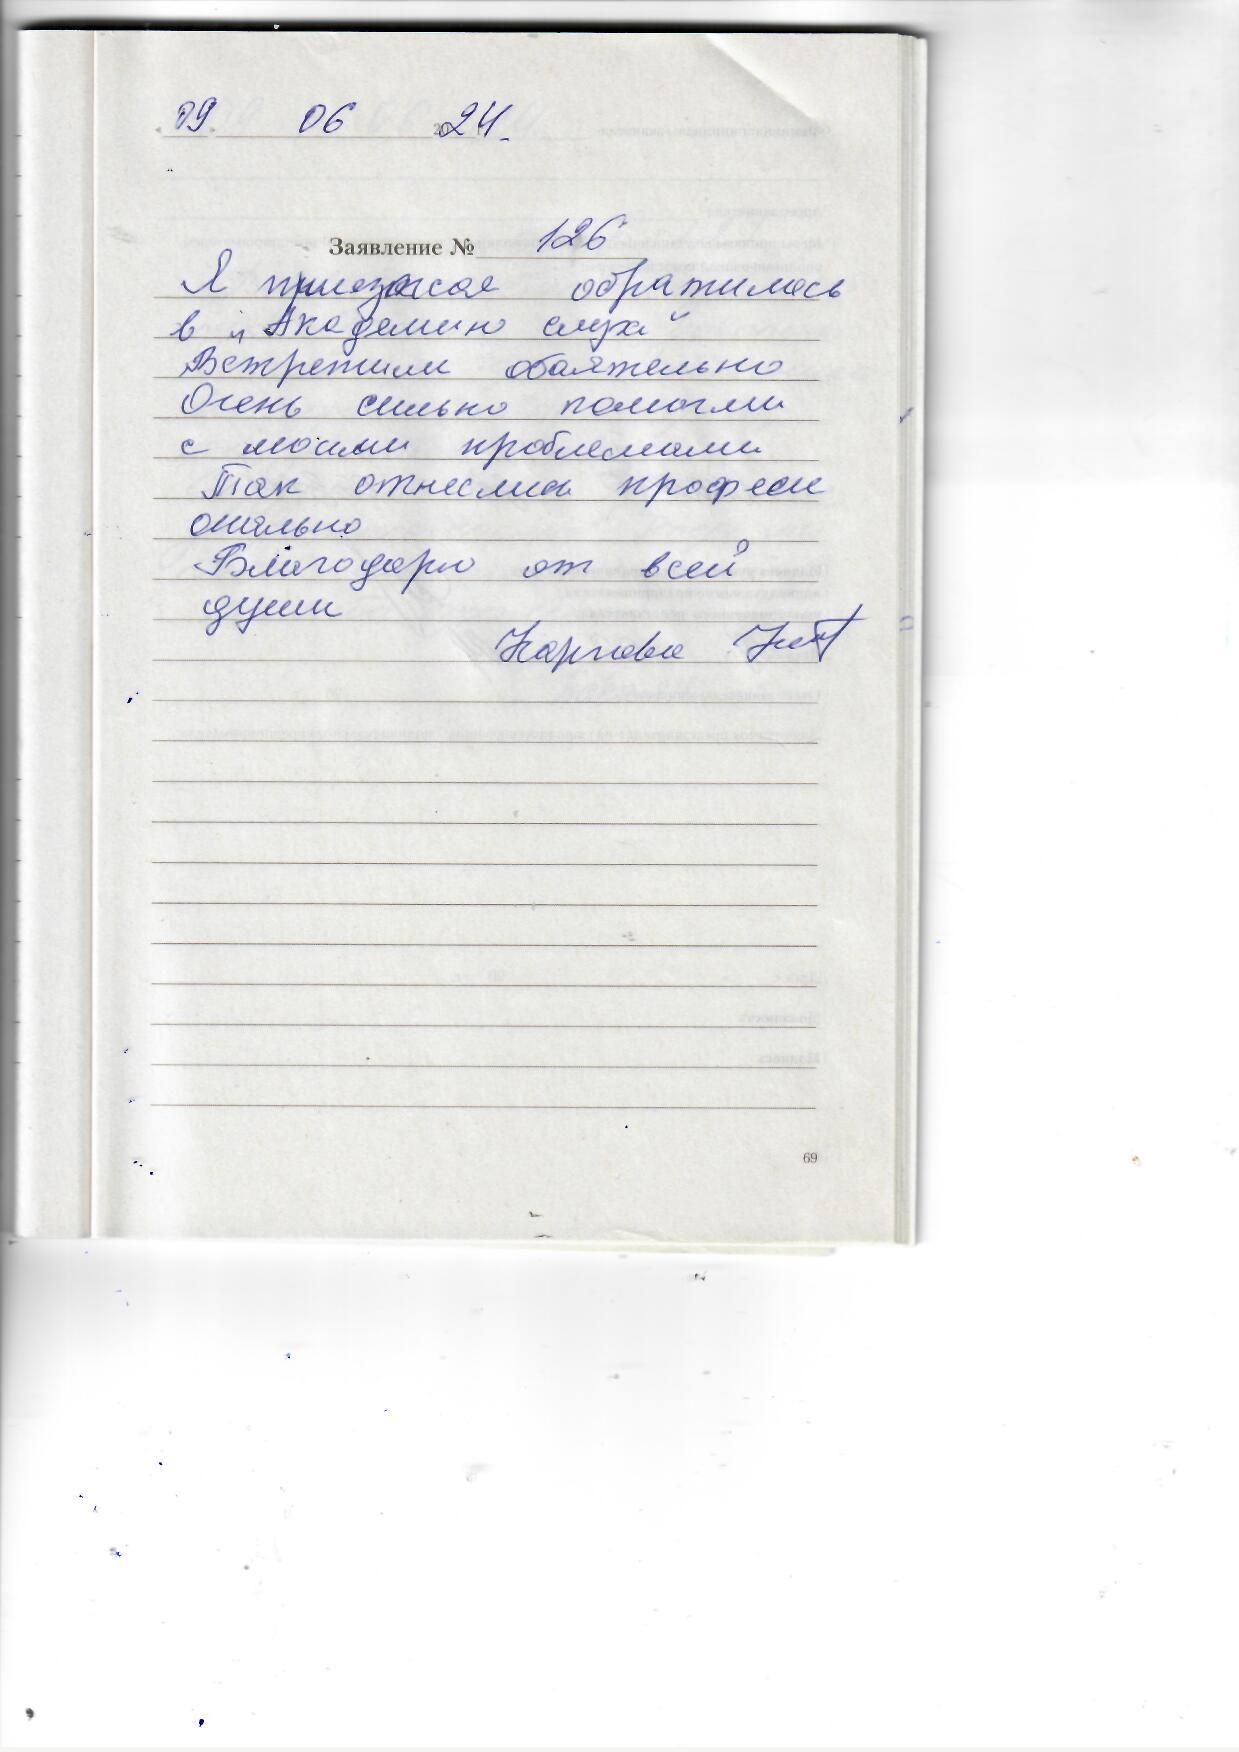 09 06 2024.
Заявление № 126
Я приезжая обратилась
в "Академию слуха"
Встретили обаятельно
Очень сильно помогли
с моими проблемами
Так отнеслись професси
онально
Благодарю от всей
души
Карпова
69